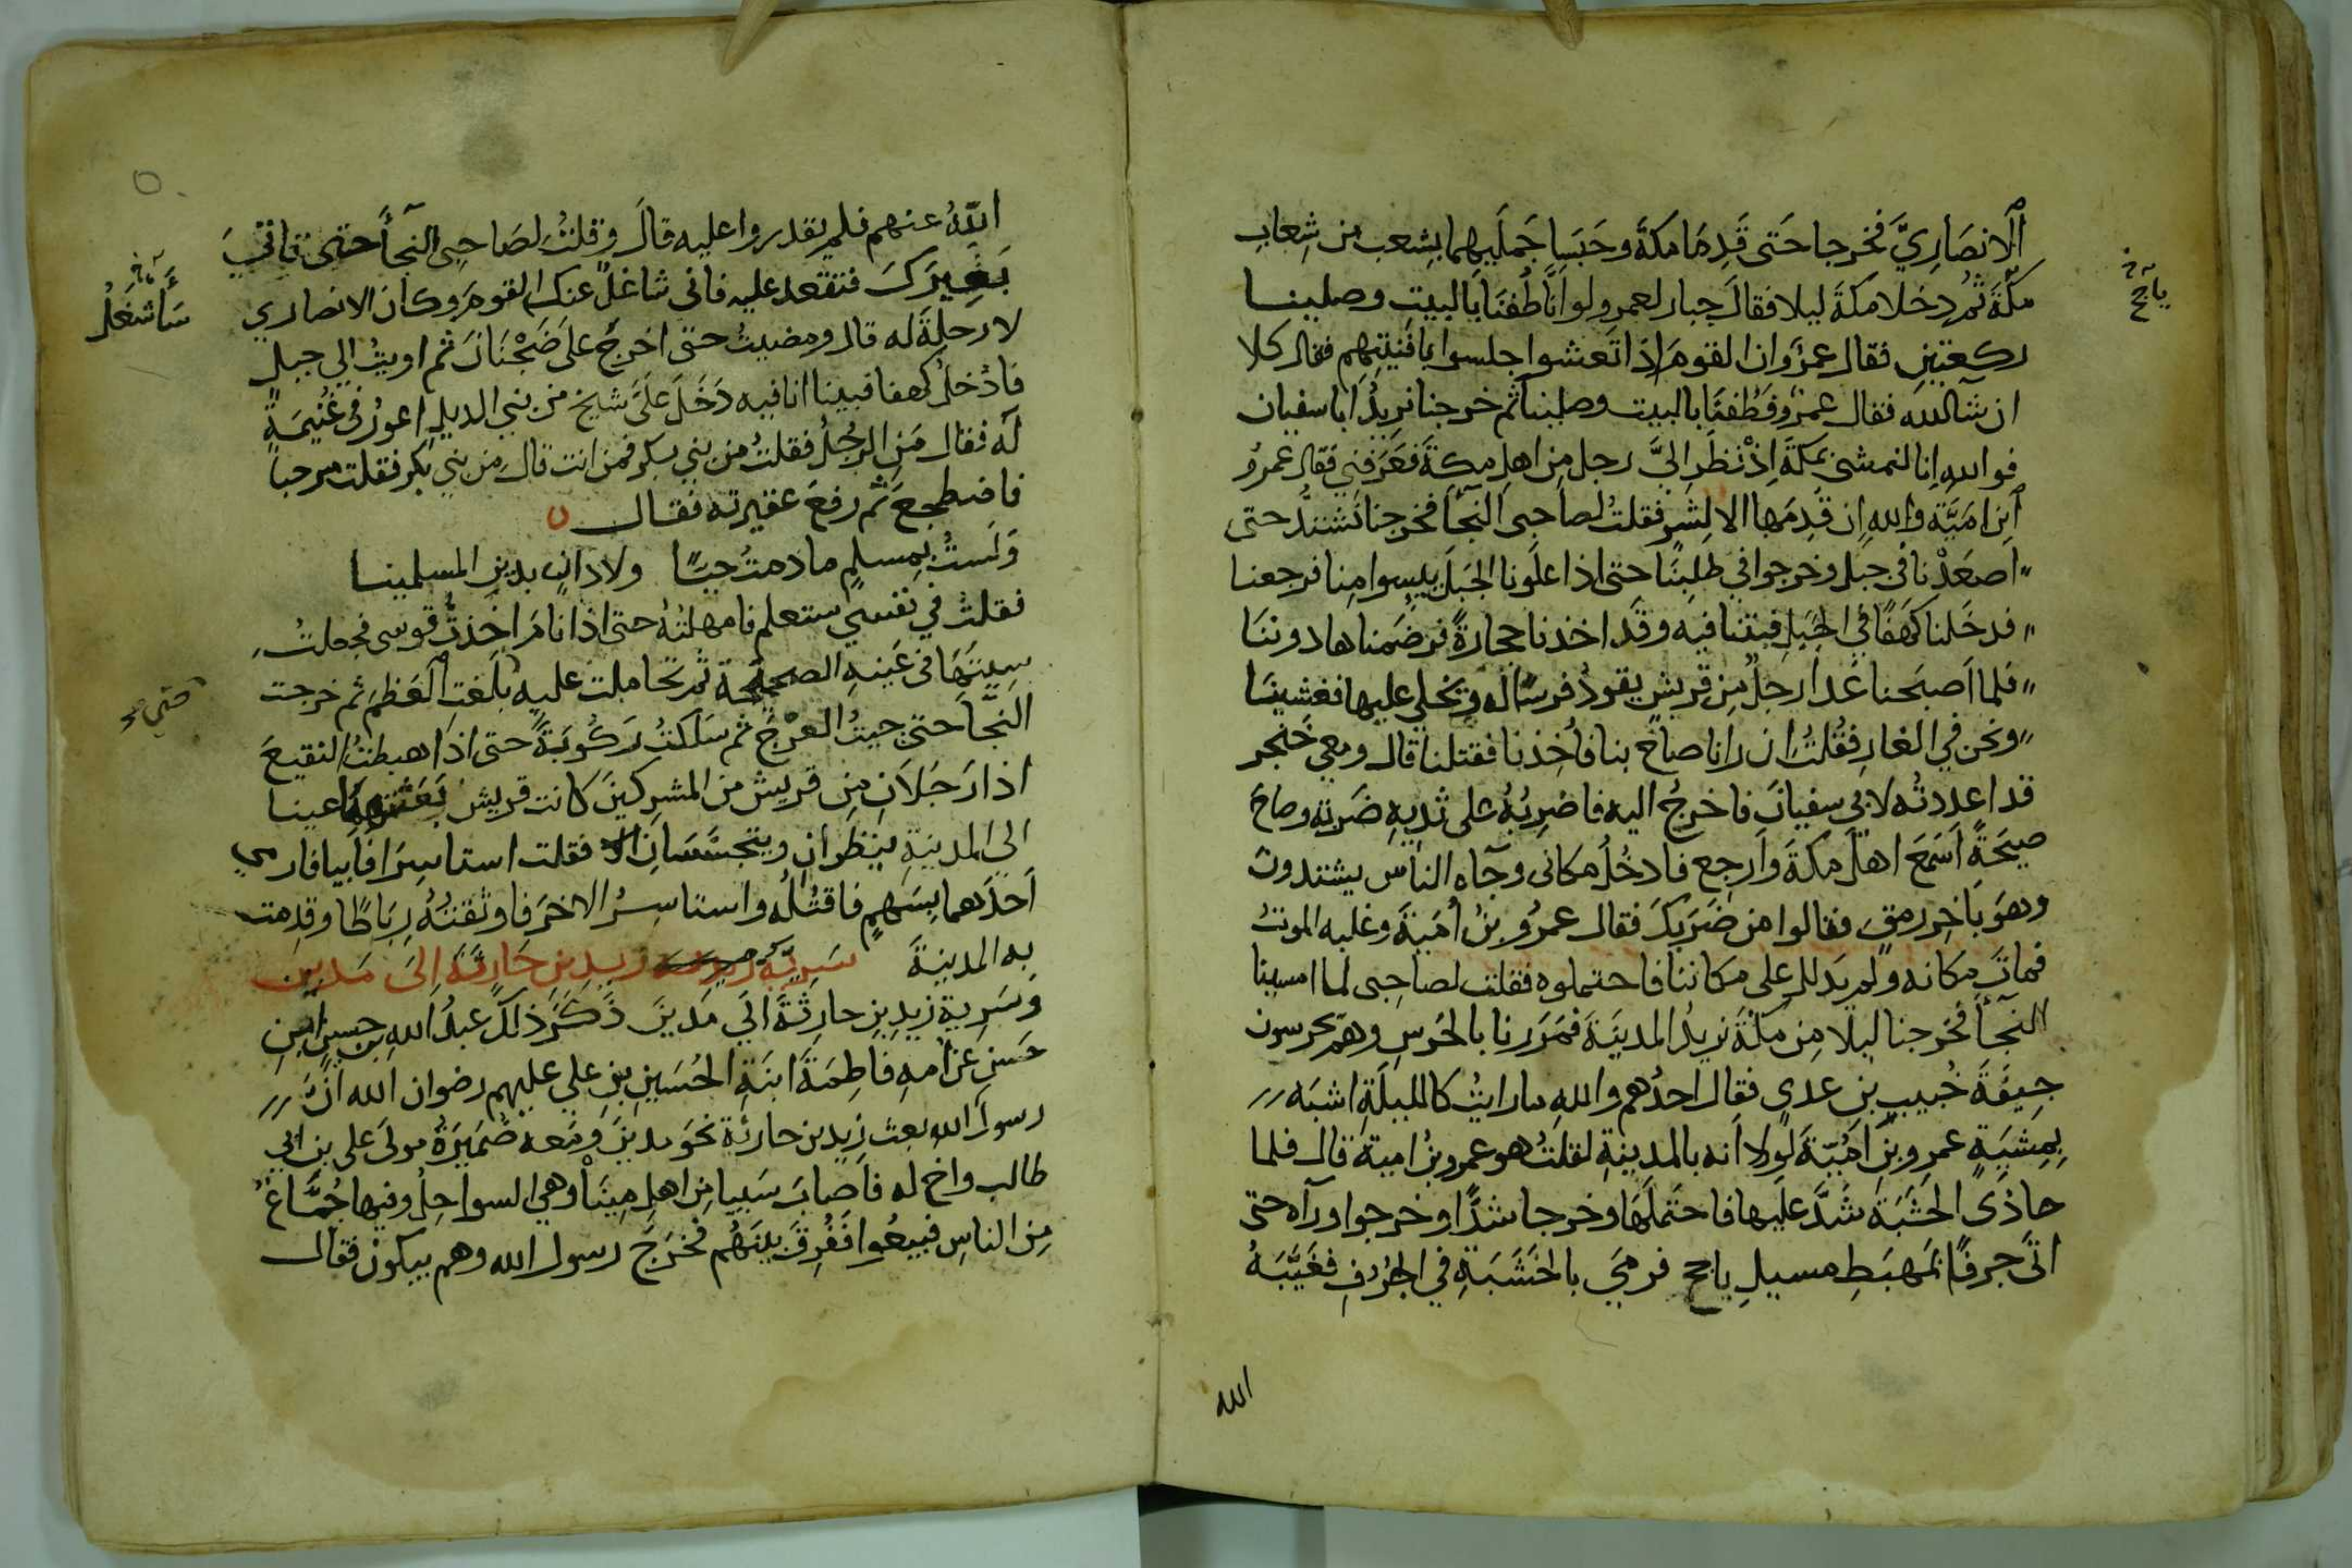 الانصاريَّ فخرجا حَتى قَدِمَا مكةَ وحَبَسَا جَمَلَيهِما بشِعب من شِعاب
مكّةَ ثم دخلا مكةَ ليلا فقالَ جبار لعمرو لو انَّا طُفنَا بالبيت وصلينا
ركعتين فقال عمرو ان القومَ اِذا تَعشوا جلسوا بافنيتِهم فقال كلا
ان شآ الله فقال عمرٌو فَطُفنَا بالبيت وصلينا ثم خرجنا نريدُ ابا سفيان
فوالله اِنا لنمشى بمكةَ اِذْ نظَر اليَّ رجل مِن اهل مكةَ فعَرَفني فقال عمرُو
ابن امَيَّة والله اِن قَدِمَها الا لِشرٍ فقلتُ لصاحِبى النجآ فخرجنا نَشتدُّ حتى
اصعَدْنا في جبلٍ وخرجوا في طلبنَا حتى اذا علَونا الجَبَلَ يئِسوا مِنا فرجعنا
فدخَلنا كهَفًا في الجَبَل فبتنا فيه وقَد اخذنا حجارةً فرضَمناها دوننَا
فلما اَصبَحنا غَدا رجلٌ مِن قريشٍ يقودُ فرسًا له ويخلي عليها فغشينَا
ونحن في الغار فقُلتُ ان رانا صاحَ بنا فاُخِذنا فقتلنا قال ومعي خَنجر
قد اعددتُه لابى سفيانَ فاخرجُ اليه فاضرِبُهُ على ثديهِ ضَربَة وصاحَ
صيحَةً اَسَمعَ اهلَ مكةَ واَرجع فادخُل مكانى وجآه الناس يشتدون
وهوَ باخِر رمقٍ فقالوا من ضَربَكَ فقال عمرُو بنُ اُمَيةَ وغلبه الموتُ
فماتَ مكانه ولم يَدلل على مكاننا فاحتملوه فقلت لصاحِبى لما امسينا
النجآَ فخرجنا ليلا مِن مكةَ نريدُ المدينَةَ فمَرَرنا بالحَرسِ وهُم يحرسون
جِيفَةَ خُبيب بن عدى فقال احدُهم والله ما رايتُ كالليلَةِ اشبَه
بِمِشيَةٍ عمرِو بن اُمَيّةَ لَولا اَنه بالمدينةِ لقلتُ هو عمرو بنُ امية قال فلما
حاذَى الخشَبَة شَدَّ علَيها فاحتَملَهَا وخرجا شدًّا وخرجوا ورآه حتى
اتَى جرفًا بمَهبَطِ مسيلِ ياجج فرمَي بالخَشَبَةِ في الجُرُفِ فغَيَّبَهُ
ياجج
الله
اللهُ عنهم فلم يقدروا عليه قالَ وقلتُ لصَاحِبى النجآَ حتى تاتيَ
بَعِيرَكَ فتقعد عليه فانى شاغلٌ عنك القومَ وكان الانصاري
لا رجلةَ له قال ومضيتُ حتى اخرجُ علَى ضَجْنَانَ ثم اويتُ الى جبلٍ
فادْخلُ كهفا فبينا انا فيه دَخَلَ علَيَّ شيخ من بني الديل اعورُ فى غُنَيمَةٍ
له فقال مَنِ الرجُلُ فقلتُ من بني بكر فمن انت قال من بني بكر فقلت مرحبا
فاضطجعَ ثم رفعَ عقيرته فقال
وَلستُ بمسلمٍ ما دمتُ حيًّا ولا دانٍ بدين المسلمينا
فقلتُ في نفسي ستعلم فامهلتُهُ حتى اذا نامَ اخذتُ قوسى فجعلتُ
سِيَتَهَا فى عَينهِ الصحيحة ثم تحاملت عليه بلَغتِ العَظمَ ثم خرجت
النجَّآَ حتى جيتُ العَرْجَ ثم سَلَكتُ رَكُوبَةً حتى اذا هبطتُ النقيعَ
اذا رَجُلاَنِ مِن قريش من المشركينَ كانت قريش بَعَثتهما عينا
الي المدينةِ ينظران ويتجسَّسَانِ فقلت استاسِرَا فابيا فارمي
اَحدَهما بسَهمٍ فاقتُلُه واستاسِرُ الاخَرَ فاوثقتُهُ رِبَاطًا وقدِمت
به المدينةَ سَرِيَّةُ زيدِ بنِ حَارِثَةَ اِلَى مَديَن
وسَرِية زيدِ بنِ حارثَةَ الَي مَديَنَ ذَكَرَ ذلكَ عبدُ اللهِ بن حسن ابن
حَسَنٍ عن امه فاطِمَةَ ابنَةِ الحُسَينِ بن علي عليهم رضوان الله انَّ
رسولَ الله بعث زيد بن حارثة نحوَ مدينَ ومَعه ضُمَيرَةُ مولَى على بن ابي
طالب واخ له فاَصابَ سَبيا مِن اهلِ مِينَآ وهي السواحِلُ وفيها جُمَّاعٌ
مِن الناسِ فبِيعُوا فَفُرِقَ بينَهُم فخَرَجَ رسول الله وهم يبكونَ فقال
سَأشغلُ
حتى